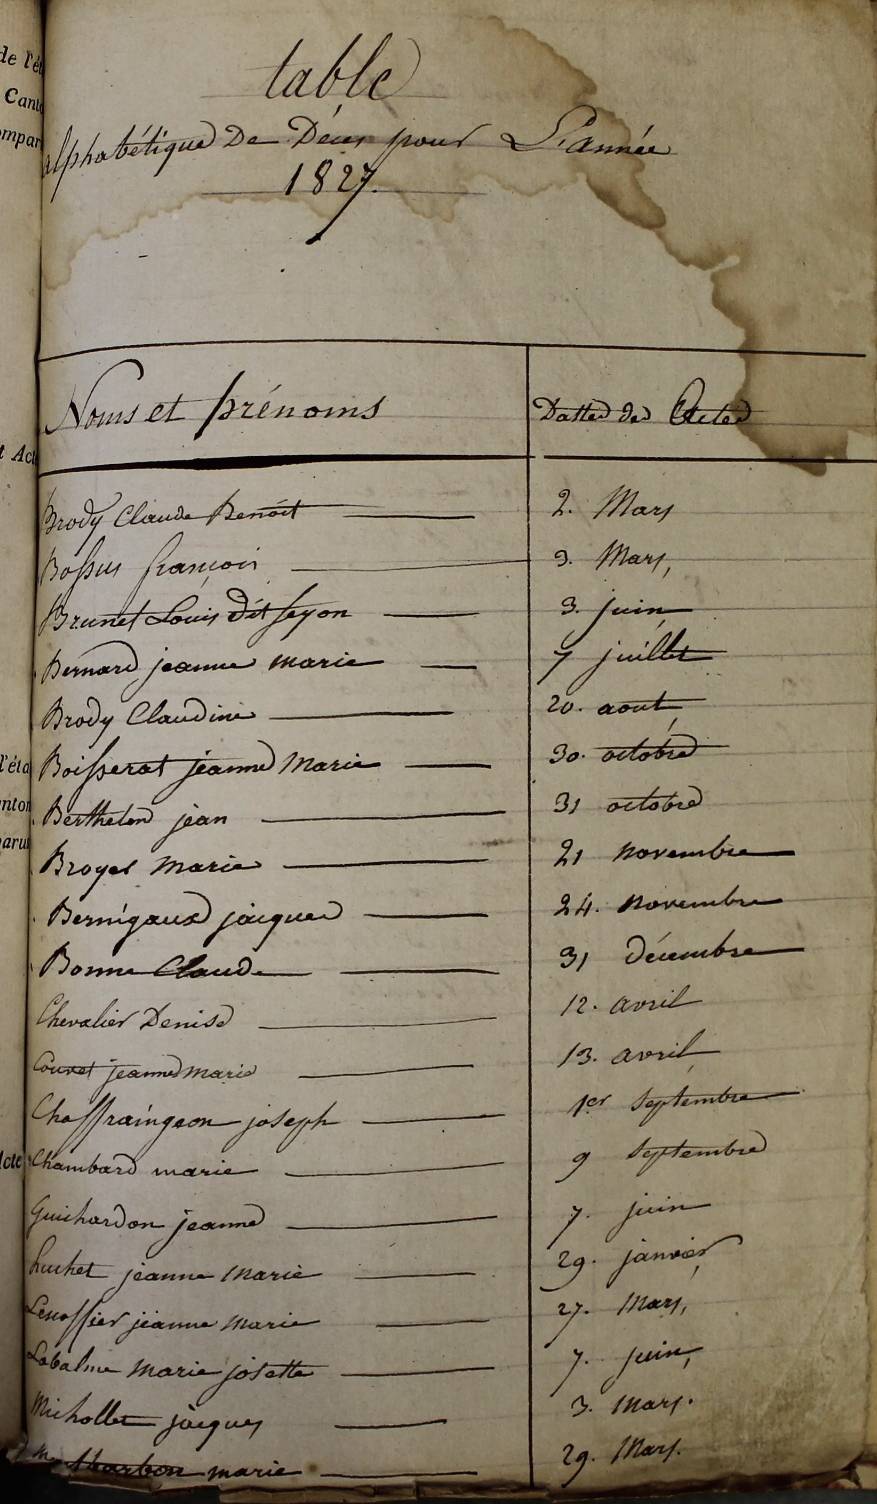 table
alphabétique De Décès pour L'année
1827.
Noms et prénoms
Dattes des Actes
Brody Claude Benoit 2. Mars
Bossus françois 3. Mars,
Brunet Louis dit 3. juin
Bernard jeanne marie 7 juillet
Brody Claudine 20. aout
Boisserat jeanne Marie 30. octobre
Berthelon jean 31 octobre
Broyer Marie 21 novembre
Bernigaud jacques 24. novembre
Bonne Claude 31 décembre
Chevalier Denise 12. avril
Couvet jeanne marie 13. avril
Choffraingeon joseph 1er septembre
Chambard marie 9 septembre
Guichardon jeanne 7. juin
Luchet jeanne Marie 29. janvier
jeanne marie 27. Mars,
Labalme Marie josette 7. juin,
Michollet jacques 3. Mars.
marie 29. Mars.
de l'ét
Canto
ompar
t Act
l'éta
anton
parut
Acte